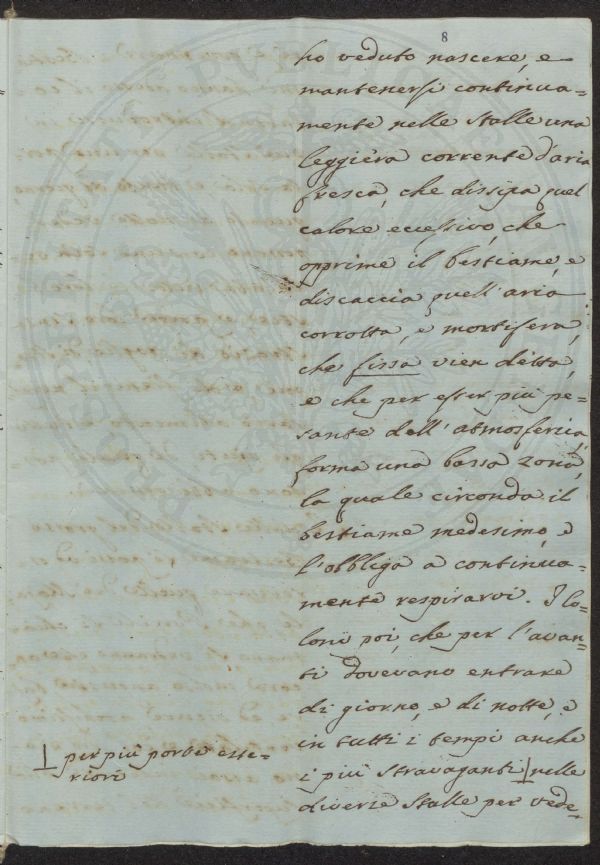 8
ho veduto nascere, e
mantenersi continua=
mente nelle stalle una
leggiera corrente d'aria
fresca, che dissipa quel
calore eccessivo, che
opprime il bestiame, e
discaccia quell'aria
corrotta, e mortifera,
che fissa vien detta,
e che per esser più pe=
sante dell'atmosferica,
forma una bassa zona,
la quale circonda il
bestiame medesimo, e
l'obbliga a continua=
mente respirarvi. I Co=
loni poi, che per l'avan=
ti dovevano entrare
di giorno, e di notte, e
in tutti i tempi anche
i più stravaganti nelle
diverse stalle per vede=
per più porte este=
riori